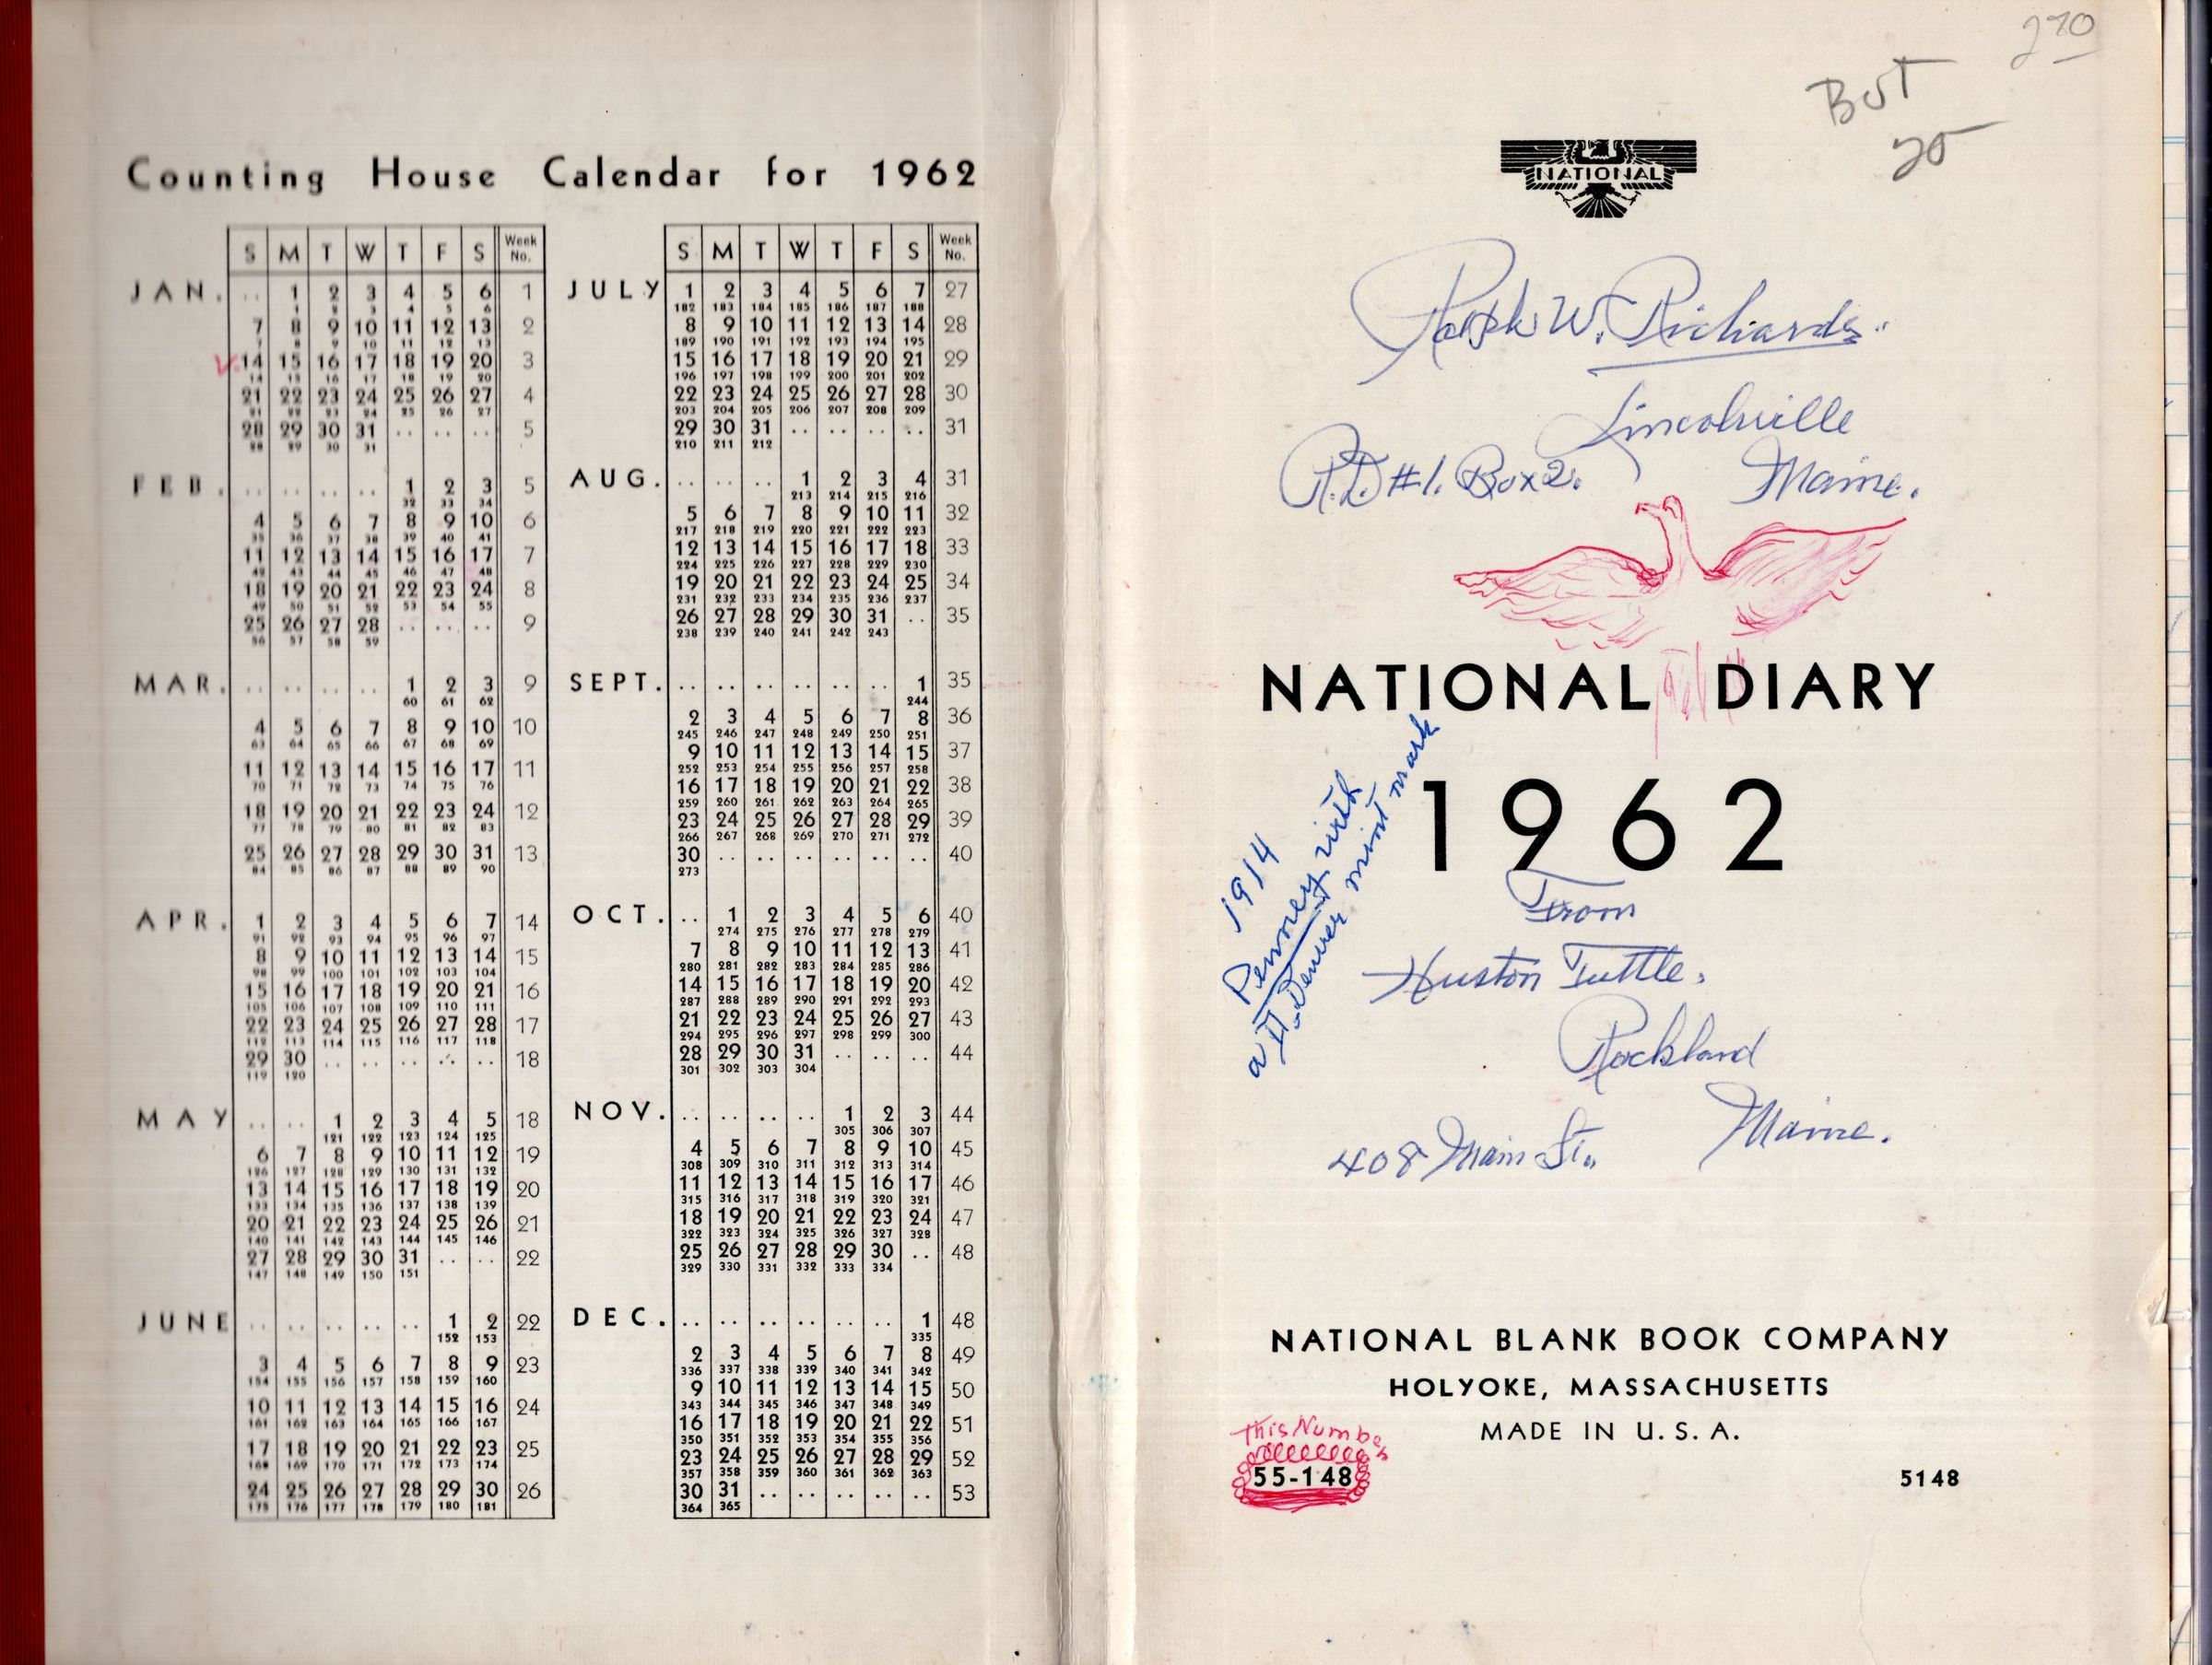 Counting House Calendar for 1962
S M T W T F S Week No.
JAN. .. 1 2 3 4 5 6 1
1 2 3 4 5 6
7 8 9 10 11 12 13 2
7 8 9 10 11 12 13
V 14 15 16 17 18 19 20 3
14 15 16 17 18 19 20
21 22 23 24 25 26 27 4
21 22 23 24 25 26 27
28 29 30 31 .. .. .. 5
28 29 30 31
FEB. .. .. .. .. 1 2 3 5
32 33 34
4 5 6 7 8 9 10 6
35 36 37 38 39 40 41
11 12 13 14 15 16 17 7
42 43 44 45 46 47 48
18 19 20 21 22 23 24 8
49 50 51 52 53 54 55
25 26 27 28 .. .. .. 9
56 57 58 59
MAR. .. .. .. .. 1 2 3 9
60 61 62
4 5 6 7 8 9 10 10
63 64 65 66 67 68 69
11 12 13 14 15 16 17 11
70 71 72 73 74 75 76
18 19 20 21 22 23 24 12
77 78 79 80 81 82 83
25 26 27 28 29 30 31 13
84 85 86 87 88 89 90
APR. 1 2 3 4 5 6 7 14
91 92 93 94 95 96 97
8 9 10 11 12 13 14 15
98 99 100 101 102 103 104
15 16 17 18 19 20 21 16
105 106 107 108 109 110 111
22 23 24 25 26 27 28 17
112 113 114 115 116 117 118
29 30 .. .. .. .. .. 18
119 120
MAY .. .. 1 2 3 4 5 18
121 122 123 124 125
6 7 8 9 10 11 12 19
126 127 128 129 130 131 132
13 14 15 16 17 18 19 20
133 134 135 136 137 138 139
20 21 22 23 24 25 26 21
140 141 142 143 144 145 146
27 28 29 30 31 .. .. 22
147 148 149 150 151
JUNE .. .. .. .. .. 1 2 22
152 153
3 4 5 6 7 8 9 23
154 155 156 157 158 159 160
10 11 12 13 14 15 16 24
161 162 163 164 165 166 167
17 18 19 20 21 22 23 25
168 169 170 171 172 173 174
24 25 26 27 28 29 30 26
175 176 177 178 179 180 181
S M T W T F S Week No.
JULY 1 2 3 4 5 6 7 27
182 183 184 185 186 187 188
8 9 10 11 12 13 14 28
189 190 191 192 193 194 195
15 16 17 18 19 20 21 29
196 197 198 199 200 201 202
22 23 24 25 26 27 28 30
203 204 205 206 207 208 209
29 30 31 .. .. .. .. 31
210 211 212
AUG. .. .. .. 1 2 3 4 31
213 214 215 216
5 6 7 8 9 10 11 32
217 218 219 220 221 222 223
12 13 14 15 16 17 18 33
224 225 226 227 228 229 230
19 20 21 22 23 24 25 34
231 232 233 234 235 236 237
26 27 28 29 30 31 .. 35
238 239 240 241 242 243
SEPT. .. .. .. .. .. .. 1 35
244
2 3 4 5 6 7 8 36
245 246 247 248 249 250 251
9 10 11 12 13 14 15 37
252 253 254 255 256 257 258
16 17 18 19 20 21 22 38
259 260 261 262 263 264 265
23 24 25 26 27 28 29 39
266 267 268 269 270 271 272
30 .. .. .. .. .. .. 40
273
OCT. .. 1 2 3 4 5 6 40
274 275 276 277 278 279
7 8 9 10 11 12 13 41
280 281 282 283 284 285 286
14 15 16 17 18 19 20 42
287 288 289 290 291 292 293
21 22 23 24 25 26 27 43
294 295 296 297 298 299 300
28 29 30 31 .. .. .. 44
301 302 303 304
NOV. .. .. .. .. 1 2 3 44
305 306 307
4 5 6 7 8 9 10 45
308 309 310 311 312 313 314
11 12 13 14 15 16 17 46
315 316 317 318 319 320 321
18 19 20 21 22 23 24 47
322 323 324 325 326 327 328
25 26 27 28 29 30 .. 48
329 330 331 332 333 334
DEC. .. .. .. .. .. .. 1 48
335
2 3 4 5 6 7 8 49
336 337 338 339 340 341 342
9 10 11 12 13 14 15 50
343 344 345 346 347 348 349
16 17 18 19 20 21 22 51
350 351 352 353 354 355 356
23 24 25 26 27 28 29 52
357 358 359 360 361 362 363
30 31 .. .. .. .. .. 53
364 365
270
NATIONAL
Ralph W. Richards.
Lincolnville
R.D #1. Box 2. Maine.
NATIONAL DIARY
1962
1914
Penney with
a D. Denver mint mark
From
Huston Tuttle.
Rockland
Maine.
408 Main St.
NATIONAL BLANK BOOK COMPANY
HOLYOKE, MASSACHUSETTS
MADE IN U. S. A.
This Number
55-148
5148